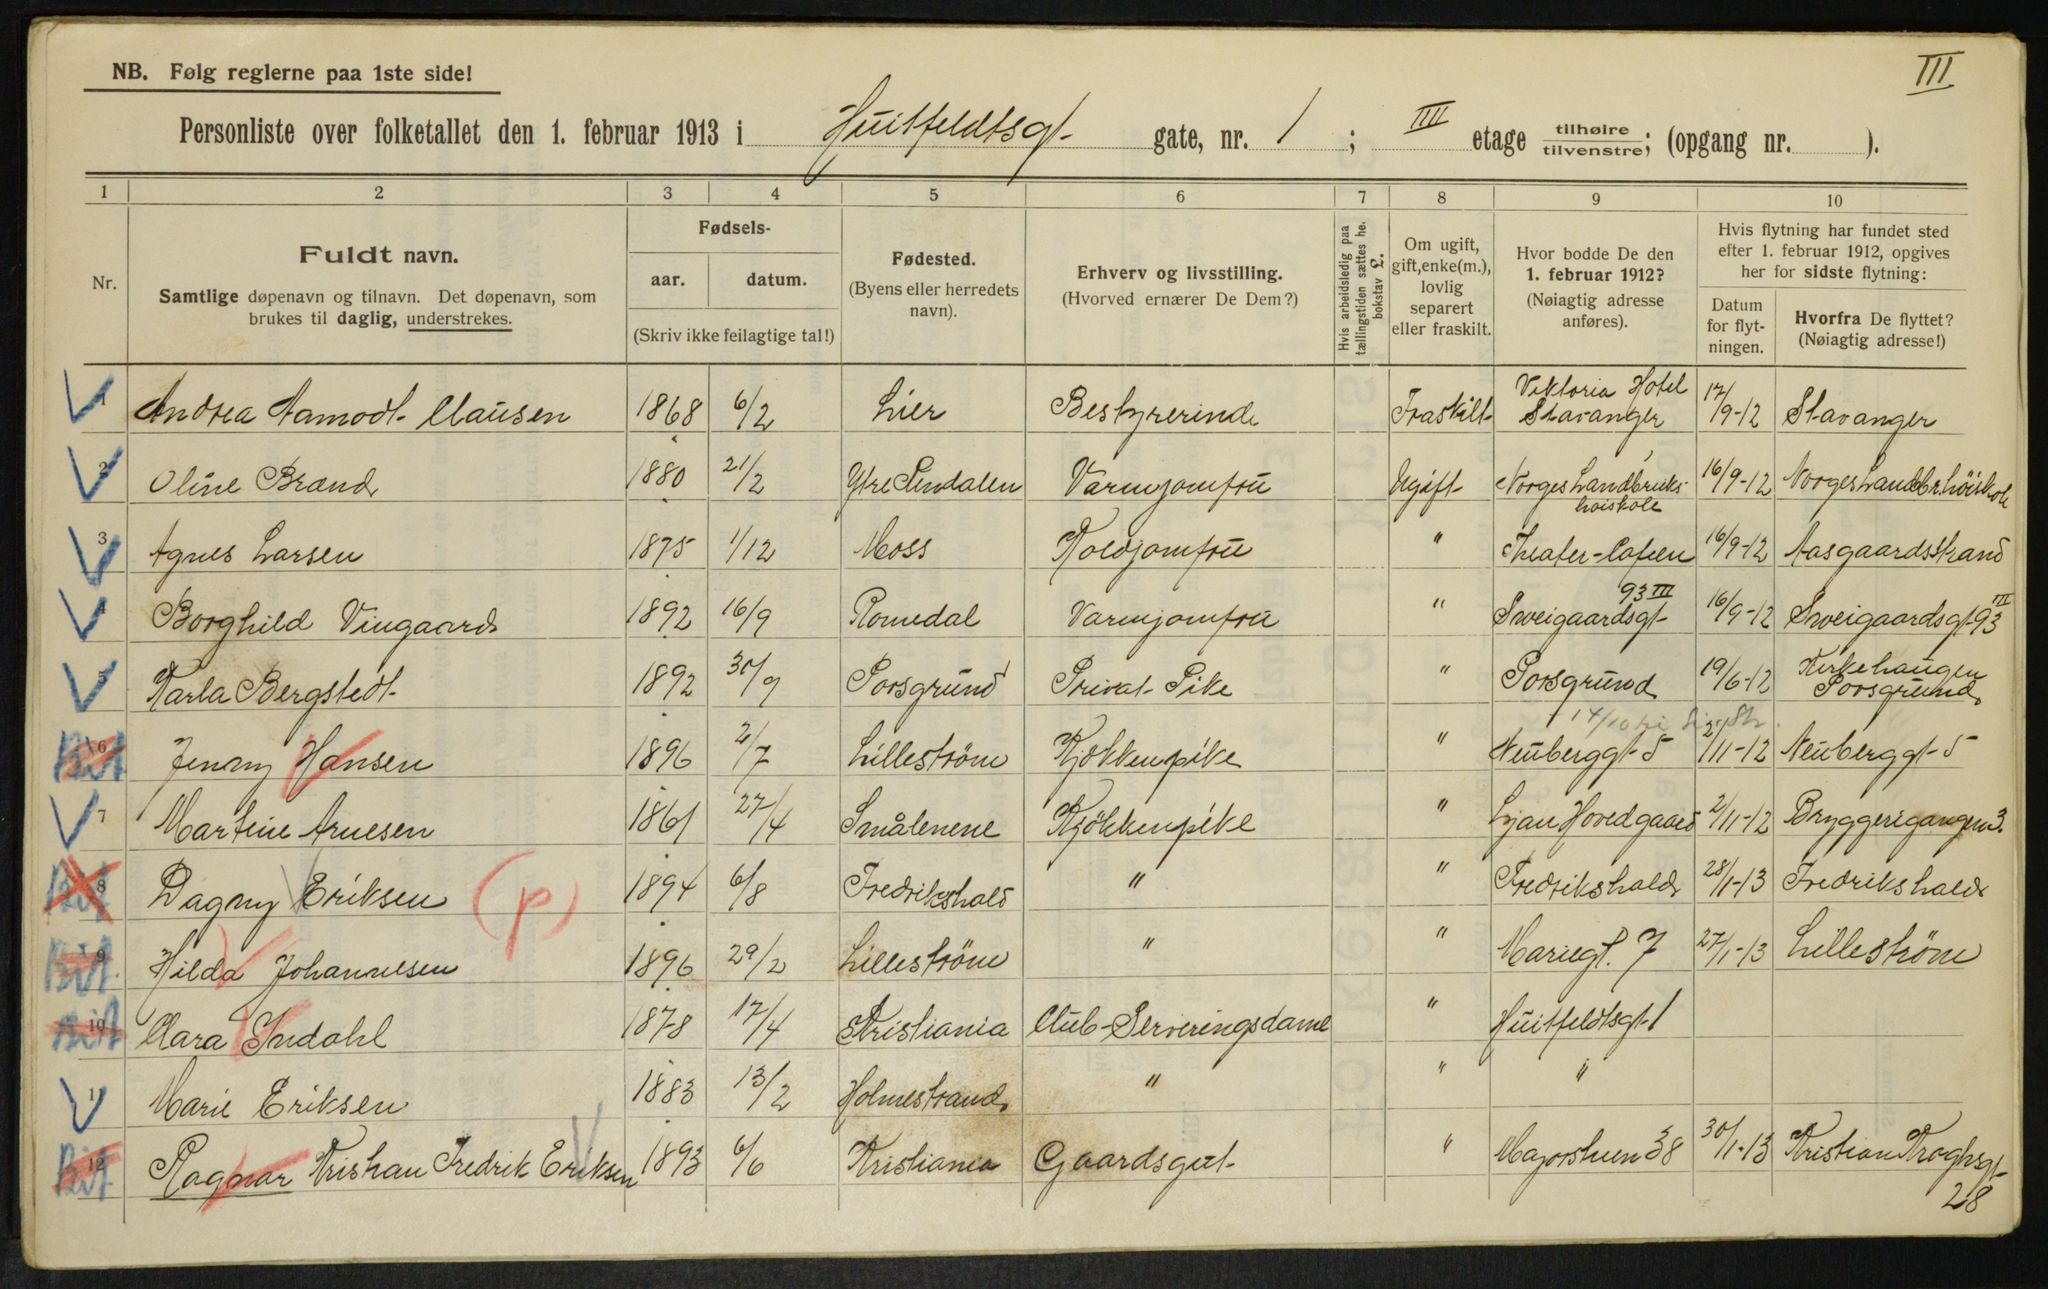 III
NB. Følg reglerne paa 1ste side!
Personliste over folketallet den 1. februar 1913 i Huitfeldtsgt- gate, nr. 1 ; III etage tilhøire tilvenstre; (opgang nr. ).
1 2 3 4 5 6 7 8 9 10
Nr.
Fuldt navn.
Samtlige døpenavn og tilnavn. Det døpenavn, som
brukes til daglig, understrekes.
Fødsels-
aar. datum.
(Skriv ikke feilagtige tal!)
Fødested.
(Byens eller herredets
navn).
Erhverv og livsstilling.
(Hvorved ernærer De Dem?)
Hvis arbeidsledig paa
tællingstiden sættes he.
bokstav L.
Om ugift,
gift, enke(m.),
lovlig
separert
eller fraskilt.
Hvor bodde De den
1. februar 1912?
(Nøiagtig adresse
anføres).
Hvis flytning har fundet sted
efter 1. februar 1912, opgives
her for sidste flytning:
Datum
for flyt-
ningen.
Hvorfra De flyttet?
(Nøiagtig adresse!)
1 Andrea Aamodt- Clausen 1868 6/2 Lier Bestyrerinde Fraskilt- Viktoria Hotel Stavanger 17/9-12 Stavanger
2 Oline Brand 1880 21/2 Ytre Rendalen Varmjomfru Ugift- Norges Landbruks- høiskole 16/9-12 Norges Landbr. høiskole
3 Agnes Larsen 1875 1/12 Moss Koldjomfru " Theater-Cafeen 16/9-12 Aasgaardsstrand
4 Borghild Vingaard 1892 16/9 Romedal Varmjomfru " Sweigaardsgt- 93 III 16/9-12 Sweigaardsgt-93 III
5 Karla Bergstedt- 1892 30/9 Porsgrund Privat- Pike " Porsgrund 19/6-12 Kirkehaugen Porsgrund
6 Jenny Hansen 1896 2/7 Lilleström Kjøkkenpike " Neuberggt- 5 2/11-12 Neuberggt- 5
7 Martine Arnesen 1861 27/4 Smålenene Kjøkkenpike " Ljan Hovedgaard 2/11-12 Bryggerigangen 3.
8 Dagny Eriksen (p) 1894 6/8 Fredrikshald " " Fredrikshald 28/1-13 Fredrikshald
9 Hilda Johannesen 1896 29/2 Lilleström " " Mariegt. 7 27/1-13 Lilleström
10 Clara Indahl 1878 17/4 Kristiania Club-Serveringsdame " Huitfeldtsgt-1
11 Marie Eriksen 1883 13/2 Holmestrand " " "
12 Ragnar Kristian Fredrik Eriksen 1893 6/6 Kristiania Gaardsgut- " Majorstuen 38 30/1-13 Kristian Kroghsgt-
28